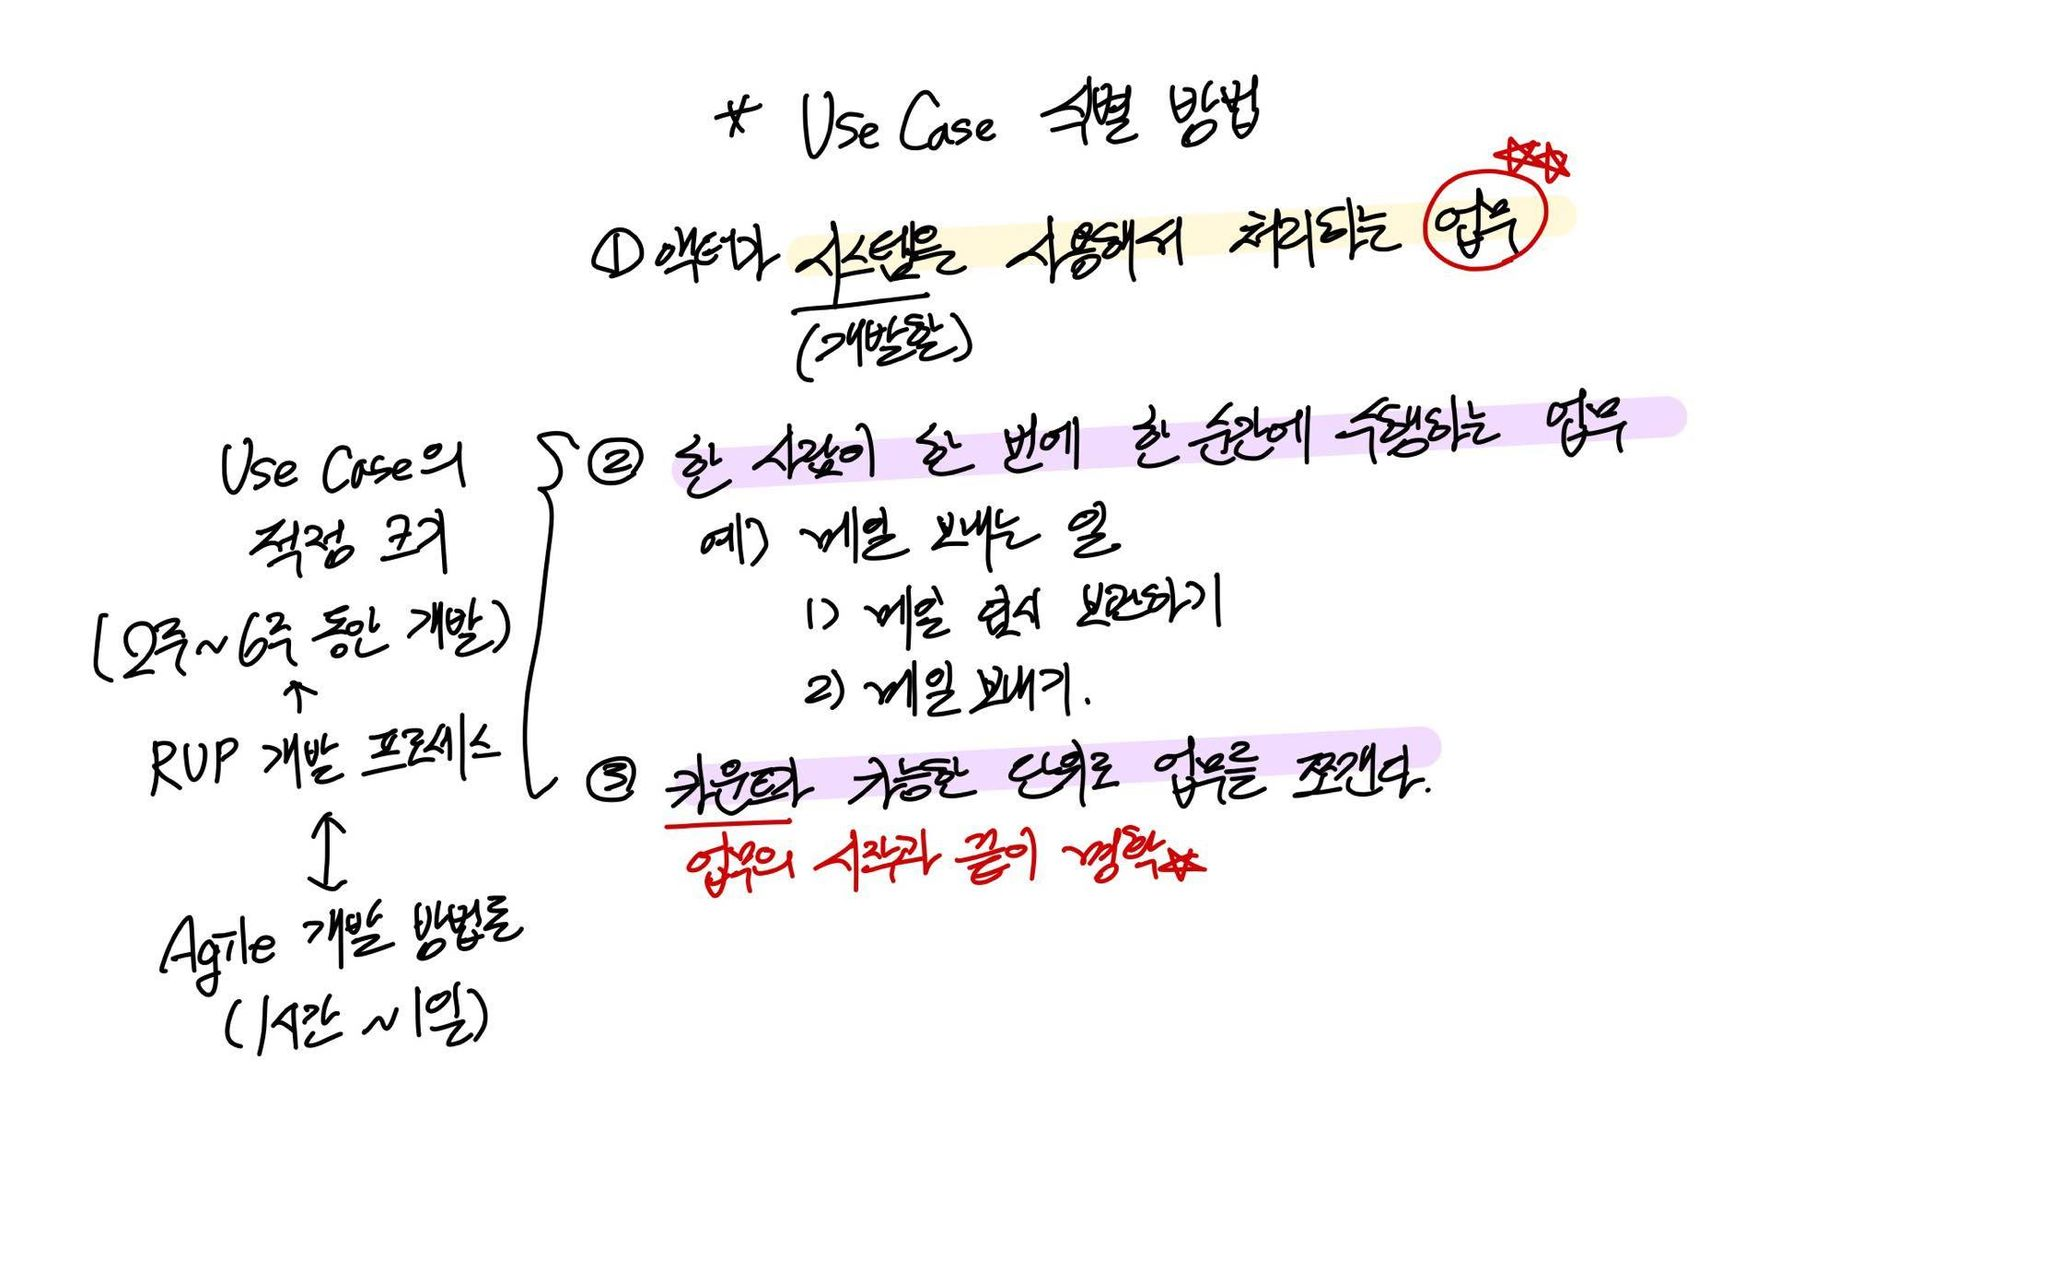 * Use Case 식별 방법
① 액터가 시스템을 사용해서 처리하는 업무
(개발할)
② 한 사람이 한 번에 한 순간에 수행하는 업무
예) 메일 보내는 일
1) 메일 임시 보관하기
2) 메일 보내기.
③ 카운트가 가능한 단위로 업무를 쪼갠다.
업무의 시작과 끝이 명확☆
Use Case의
적정 크기
(2주~6주 동안 개발)
↑
RUP 개발 프로세스
↕
Agile 개발 방법론
(1시간 ~1일)